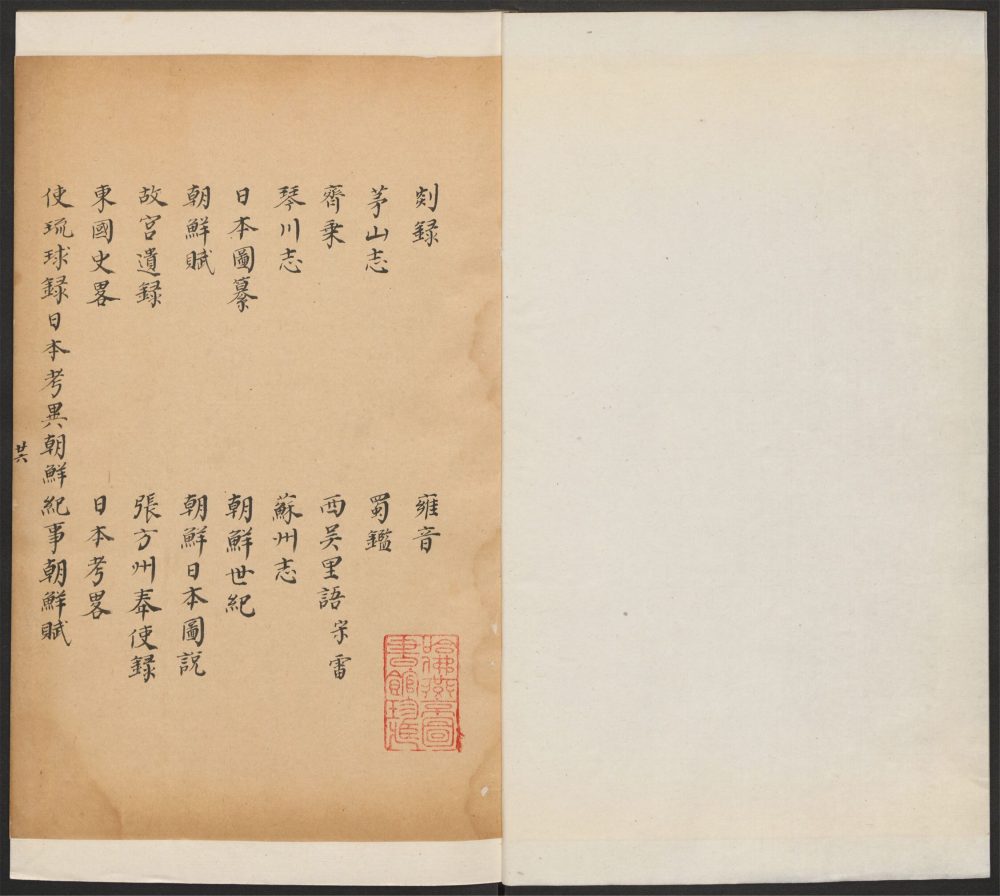 剡録
雍音
茅山志
蜀鑑
齊乗
西吴里語 宋雷
琴川志
蘇州志
日本圖纂
朝鮮世紀
朝鮮賦
朝鮮日本圖説
故宫遺録
張方州奉使録
東國史畧
日本考畧
使琉球録日本考異朝鮮紀事朝鮮賦
廿六
哈佛燕京圖
書館珍藏